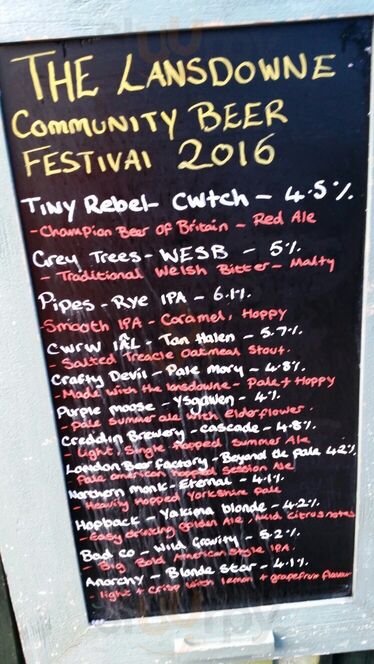 THE LANSDOWNE
COMMUNITY BEER
FESTIVAL 2016
TINY Rebel - CWtch - 4.5%
- Champion Beer of Britain - Red Ale
Grey Trees - WESB - 5%
- Traditional Welsh Bitter - Malty
Pipes - Rye IPA - 6.1%
- Smooth IPA - Caramel, Hoppy
CWRW IAL - Tan Halen - 5.7%
- Salted Treacle Oatmeal Stout.
Crafty Devil - Pale Mary - 4.8%
- Made with the lansdowne - Pale + Hoppy
Purple moose - Ysgawen - 4%
- Pale Summer ale with elderflower.
Creddin Brewery - cascade - 4.8%
- Light, Single hopped Summer Ale
London Beer Factory - Beyond the pale 4.2%
Pale american hopped Session Ale
Northern Monk - Eternal - 4.1%
- Heavily Hopped Yorkshire Pale
Hopback - Yakima blonde - 4.2%
- Easy drinking golden Ale, Mild citrus notes
Bad co - Wild Gravity - 5.2%
- Big Bold American Style IPA.
Anarchy - Blonde Star - 4.1%
- light + crisp with lemon + grapefruit flavour